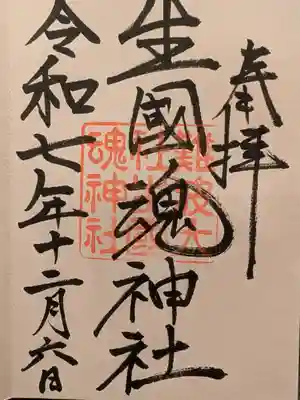 奉拝
生國魂神社
令和七年十二月六日
難波大社生國魂神社